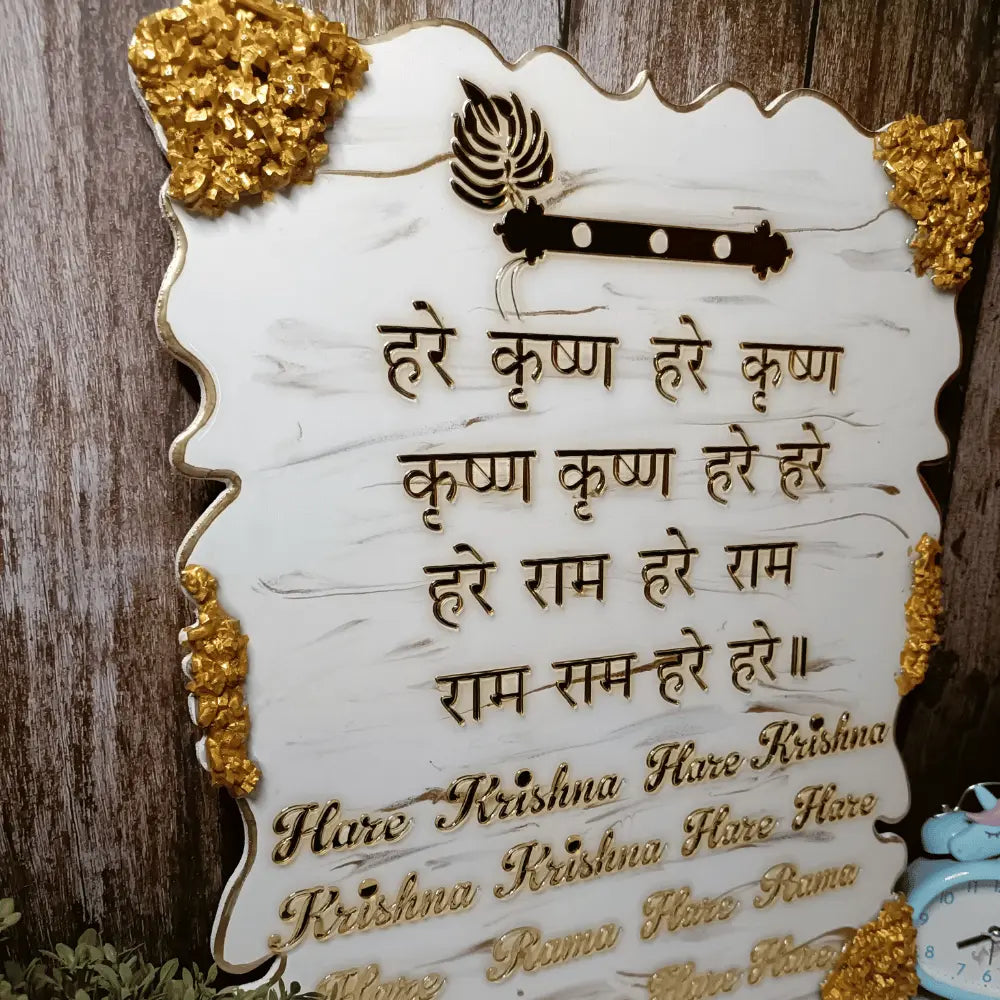 हरे कृष्ण हरे कृष्ण
कृष्ण कृष्ण हरे हरे
हरे राम हरे राम
राम राम हरे हरे॥
Hare Krishna Hare Krishna
Krishna Krishna Hare Hare
Hare Rama Hare Rama
Hare Hare
10
9
8
7
6